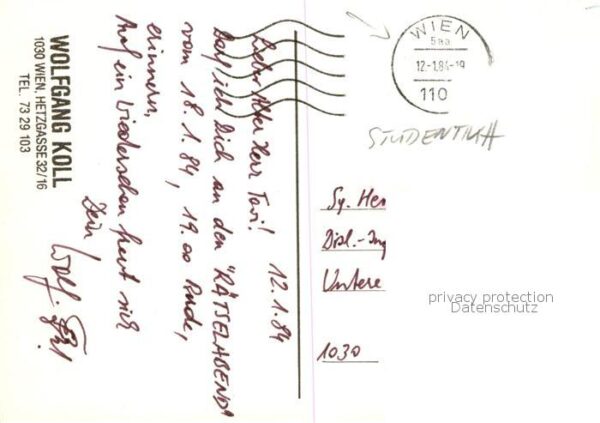 WOLFGANG KOLL
1030 WIEN, HETZGASSE 32/16
TEL. 73 29 103
12.1.84
Lieber Alter Herr Tavi!
Darf ich Dich an den "RÄTSELABEND"
vom 18.1.84, 19.00 Bude,
erinnern,
Auf ein Wiedersehen freut sich
Dein
Wolfg.
WIEN
5aa
12-1.84-19
110
STUDENTIKA
Sg. Her
Dipl.-Ing
Untere
1030
privacy protection
Datenschutz